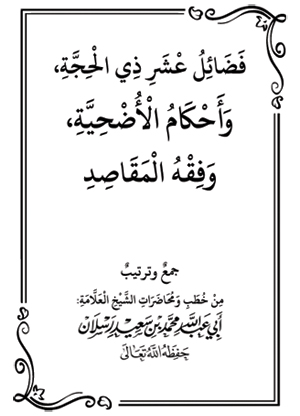 فَضَائِلُ عَشْرِ ذِي الْحِجَّةِ،
وَأَحْكَامُ الْأُضْحِيَّةِ،
وَفِقْهُ الْمَقَاصِدِ
جمعٌ وترتيبٌ
مِنْ خُطَبِ وَمُحَاضَرَاتِ الشَّيْخِ الْعَلَّامَةِ:
أَبِي عَبْدِ اللَّهِ مُحَمَّدِ بْنِ سَعِيدٍ رَسْلَان
حَفِظَهُ اللَّهُ تَعَالَى